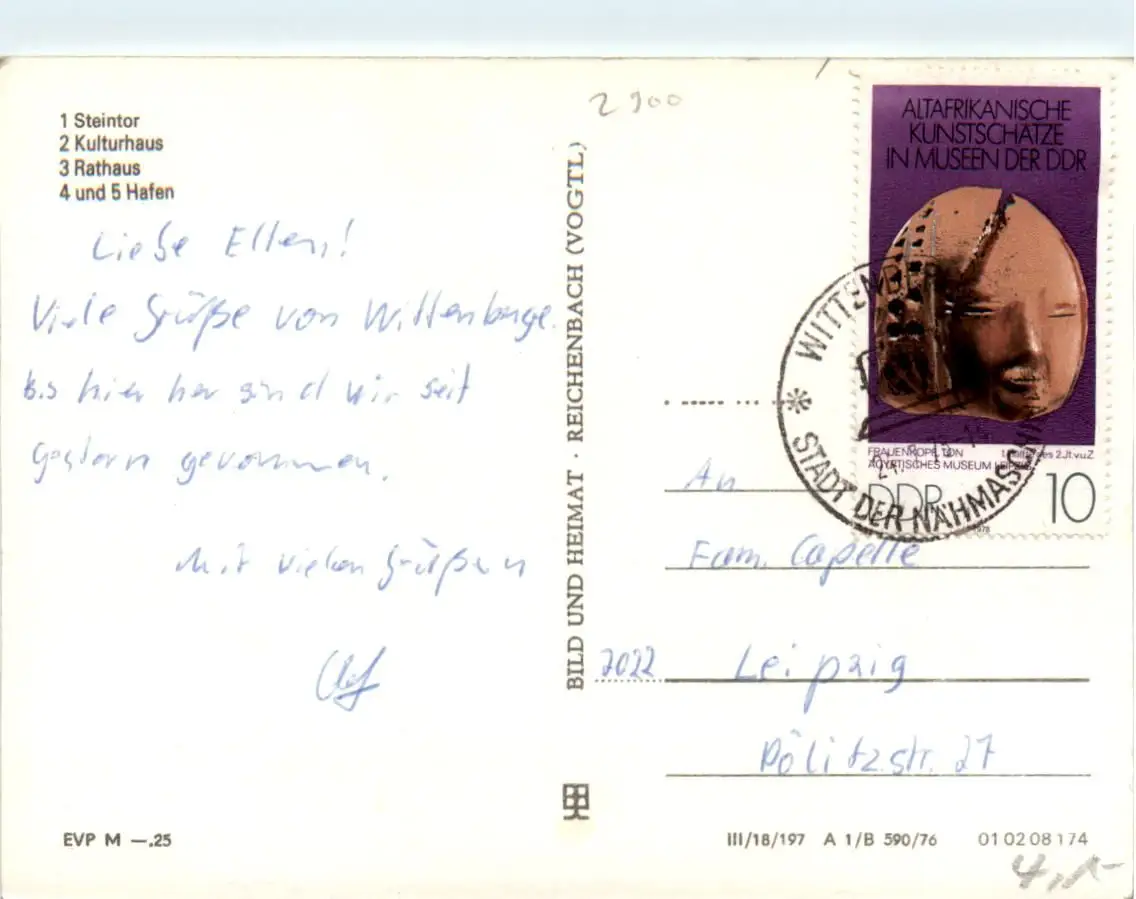 1 Steintor
2 Kulturhaus
3 Rathaus
4 und 5 Hafen
Liebe Ellen!
Viele Grüße von Wittenberge.
bis hier her sind wir seit
gestern gekommen.
Mit vielen Grüßen
EVP M —.25
BILD UND HEIMAT · REICHENBACH (VOGTL)
2900
ALTAFRIKANISCHE
KUNSTSCHÄTZE
IN MUSEEN DER DDR
FRAUENKOPF, TON
ÄGYPTISCHES MUSEUM LEIPZIG
DDR 10
1978
WITTENBERGE
STADT DER NÄHMASCHI
An
Fam. Capelle
7022 Leipzig
Pölitzstr. 27
III/18/197 A 1/B 590/76 01 02 08 174
4,-